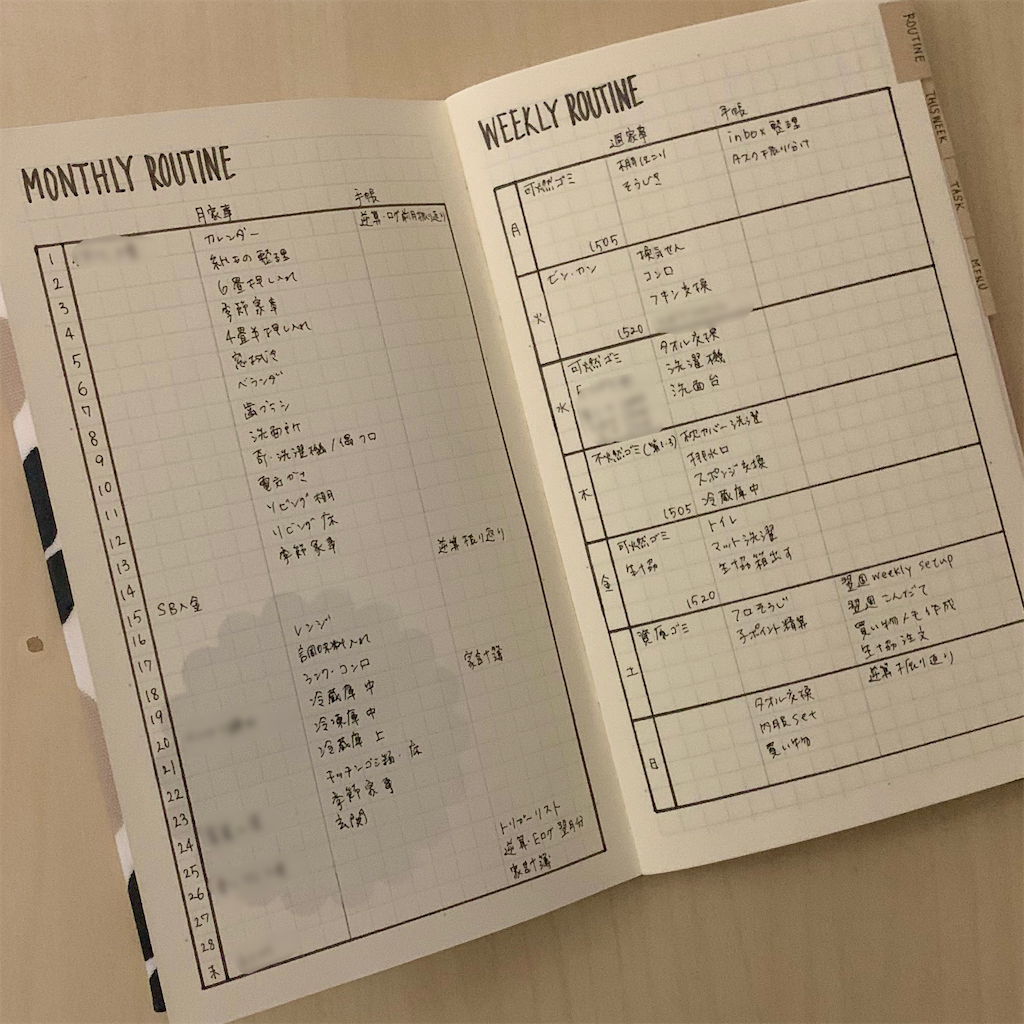 MONTHLY ROUTINE
月家事
手帳
1 カレンダー 逆算・ログ前月振り返り
2 紙もの整理
3 6畳押し入れ
4 季節家事
5 4畳半押し入れ
6 窓ふき
7 ベランダ
8 歯ブラシ
9 洗面所
10 奇・洗濯機/偶フロ
11 電気かさ
12 リビング棚
13 リビング床
14 季節家事 逆算振り返り
15 SB入金
16
17 レンジ
18 調味料入れ
19 シンク・コンロ 家計簿
20 冷蔵庫中
21 冷凍庫中
22 冷蔵庫上
23 キッチンゴミ箱・床
24 季節家事
25 玄関
26 トリプーリスト
27 逆算・ログ翌月分
28 家計簿
末
WEEKLY ROUTINE
週家事
手帳
月
可燃ゴミ 棚ほこり inbox整理
そうじき タスク振り分け
1505
火
ビン・カン 換気せん
コンロ
フキン交換
1520
水
可燃ゴミ タオル交換
洗濯機
洗面台
木
不燃ゴミ(第1・3) 枕カバー洗濯
排水口
スポンジ交換
1505 冷蔵庫中
金
可燃ゴミ トイレ
生協 マット洗濯
生協箱出す
1520
土
資源ゴミ フロそうじ 翌週weekly setup
子ポイント精算 翌週こんだて
買い物メモ作成
生協注文
日
タオル交換 逆算振り返り
内服set
買い物
ROUTINE
THISWEEK
TASK
MENU